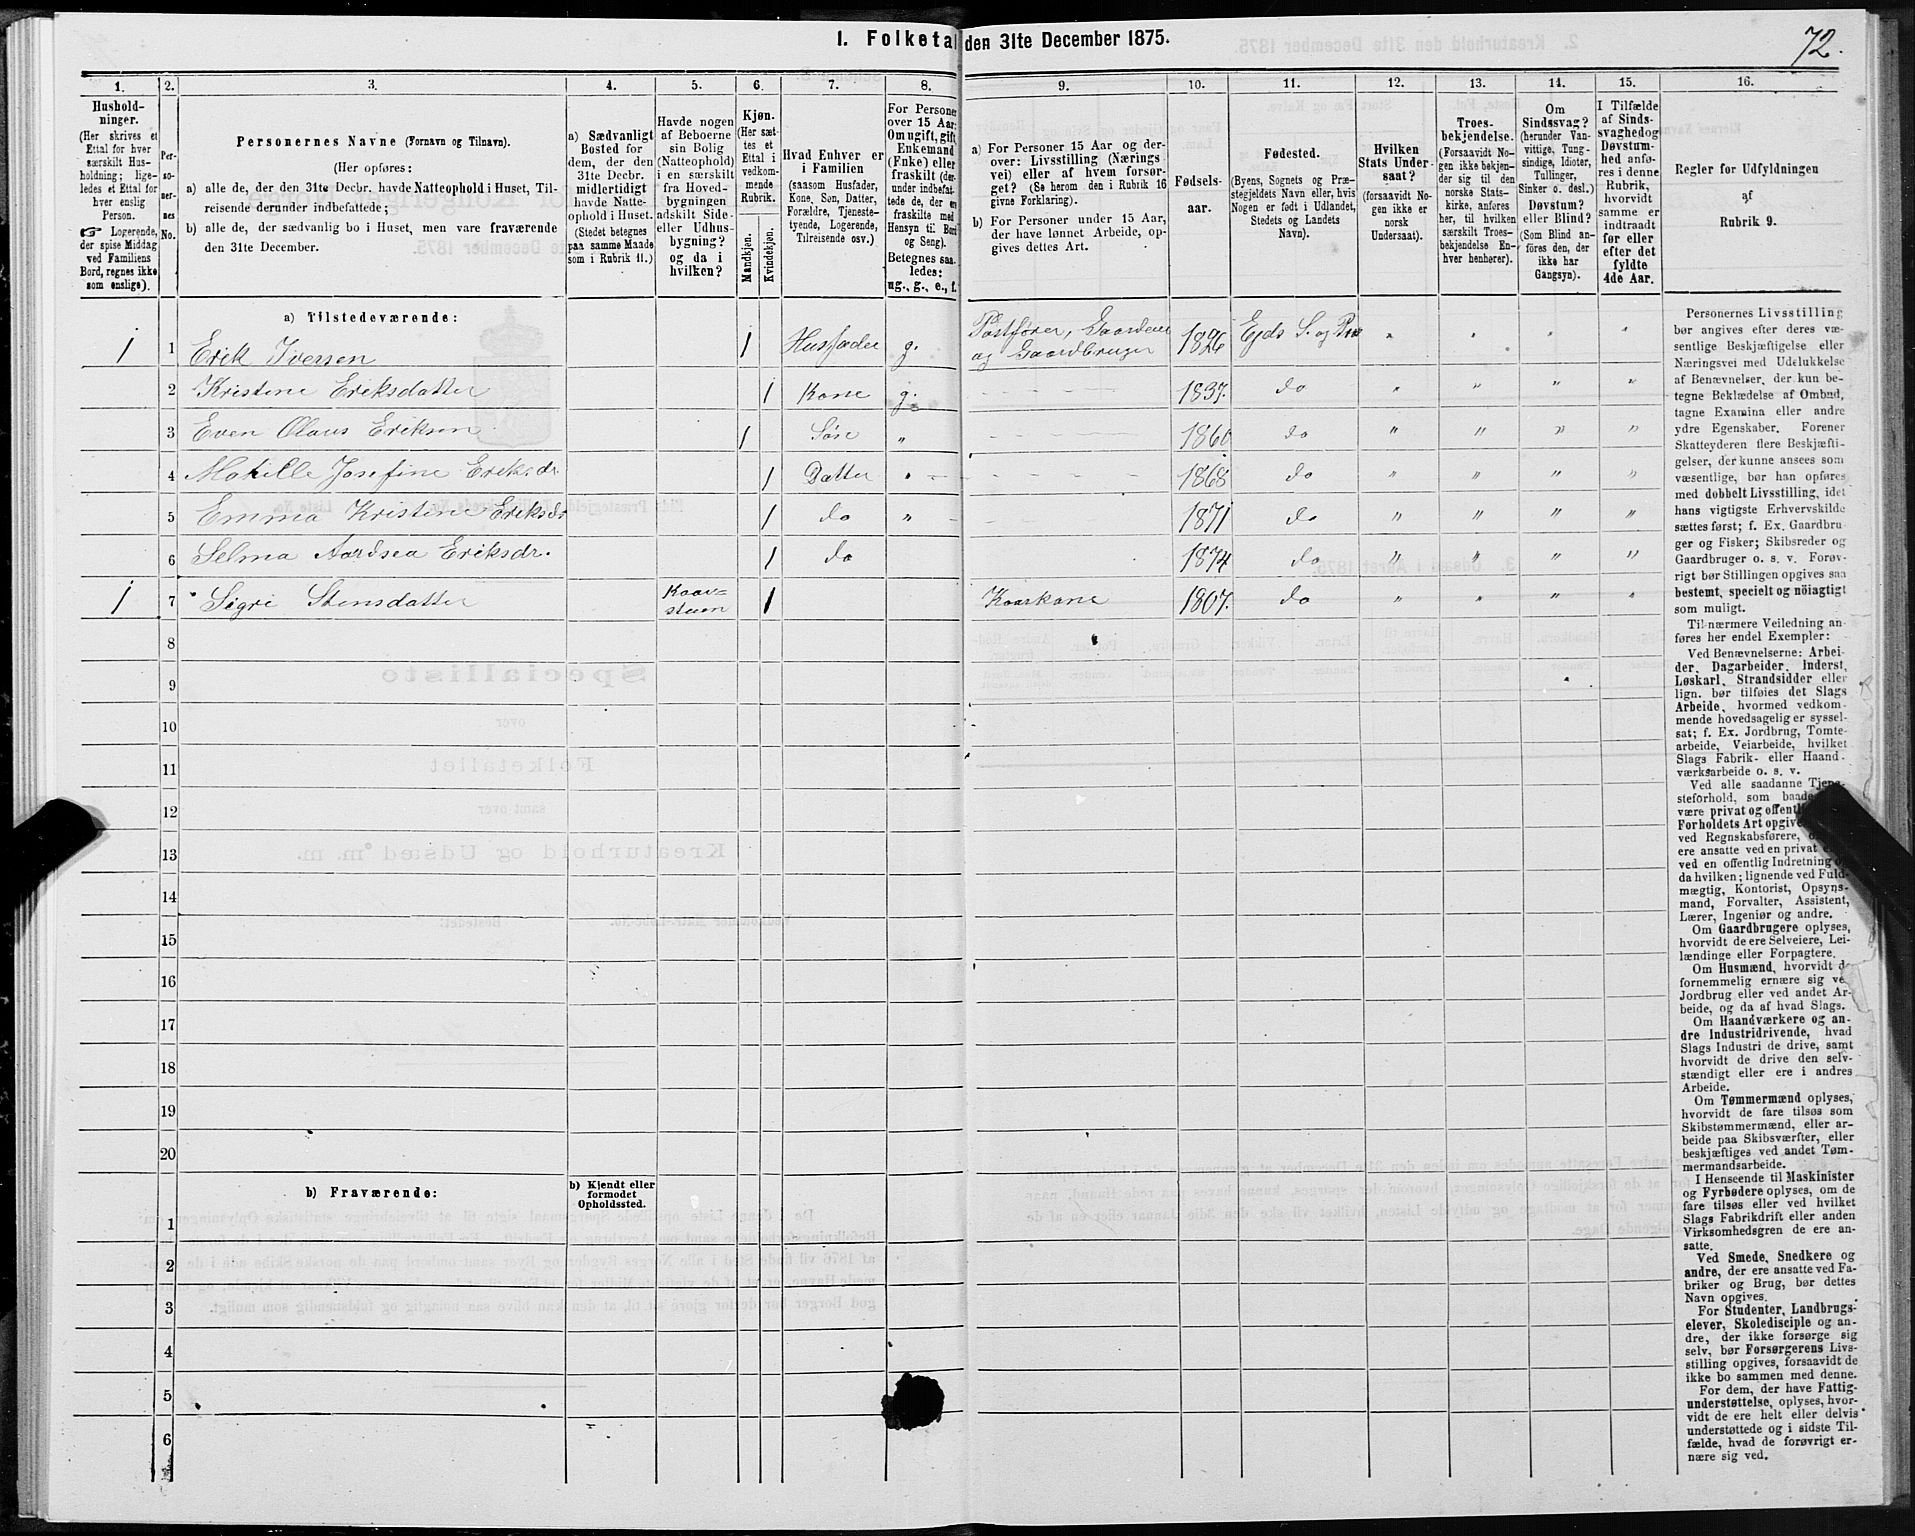 I. Folketal den 31te December 1875.
72.
1.
2.
3.
4.
5.
6.
7.
8.
9.
10.
11.
12.
13.
14.
15.
16.
Hushold-
ninger.
(Her skrives et
Ettal for hver
særskilt Hus-
holdning; lige-
ledes et Ettal for
hver enslig
Person.
☞ Logerende,
der spise Middag
ved Familiens
Bord, regnes ikke
som enslige).
Per-
so-
ner-
nes
No.
Personernes Navne (Fornavn og Tilnavn).
(Her opføres:
a) alle de, der den 31te Decbr. havde Natteophold i Huset, Til-
reisende derunder indbefattede;
b) alle de, der sædvanlig bo i Huset, men vare fraværende
den 31te December.
a) Sædvanligt
Bosted for
dem, der den
31te Decbr.
midlertidigt
havde Natte-
ophold i Huset.
(Stedet betegnes
paa samme Maade
som i Rubrik 11.)
Havde nogen
af Beboerne
sin Bolig
(Natteophold)
i en særskilt
fra Hoved-
bygningen
adskilt Side-
eller Udhus-
bygning?
og da i
hvilken?
Kjøn.
(Her sæt-
tes et
Ettal i
vedkom-
mende
Rubrik.
Mandkjøn.
Kvindekjøn.
Hvad Enhver er
i Familien
(saasom Husfader,
Kone, Søn, Datter,
Forældre, Tjeneste-
tyende, Logerende,
Tilreisende osv.)
For Personer
over 15 Aar:
Om ugift, gift,
Enkemand
(Enke) eller
fraskilt (der-
under indbefat-
tede de, der ere
fraskilte med
Hensyn til Bord
og Seng).
Betegnes saa-
ledes:
ug., g., e., f.
a) For Personer 15 Aar og der-
over: Livsstilling (Nærings
vei) eller af hvem forsør-
get? (Se herom den i Rubrik 16
givne Forklaring).
b) For Personer under 15 Aar,
der have lønnet Arbeide, op-
gives dettes Art.
Fødsels-
aar.
Fødested.
(Byens, Sognets og Præ-
stegjeldets Navn eller, hvis
Nogen er født i Udlandet,
Stedets og Landets
Navn).
Hvilken
Stats Under-
saat?
(forsaavidt No-
gen ikke er
norsk
Undersaat).
Troes-
bekjendelse.
(Forsaavidt No-
gen ikke bekjen-
der sig til den
norske Stats-
kirke, anføres
her, til hvilken
særskilt Troes-
bekjendelse En-
hver henhører).
Om
Sindssvag?
(herunder Van-
vittige, Tung-
sindige, Idioter,
Tullinger,
Sinker o. desl.)
Døvstum?
eller Blind?
(Som Blind an-
føres den, der
ikke har
Gangsyn).
I Tilfælde
af Sinds-
svaghed og
Døvstum-
hed anfø-
res i denne
Rubrik,
hvorvidt
samme er
indtraadt
før eller
efter det
fyldte
4de Aar.
Regler for Udfyldningen
af
Rubrik 9.
a) Tilstedeværende:
1 1 Erik Iversen 1 Husfader g. Postfører, Gaardeier og Gaardbruger 1826 Ejds S. og Præ " " " "
2 Kristine Eriksdatter 1 Kone g. 1837. do " " " "
3 Even Olaus Eriksen 1 Søn " 1860 do " " " "
4 Josefine Eriksdr. 1 Datter " 1868 do " " " "
5 Emma Kristine Eriksdr 1 do " 1871 do " " " "
6 Selma Eriksdr. 1 do 1874 do " " " "
1 7 Sigri Stensdatter Kaar-stuen 1 Kaarkone 1807. do " " " "
8
9
10
11
12
13
14
15
16
17
18
19
20
b) Fraværende:
b) Kjendt eller
formodet
Opholdssted.
1
2
3
4
5
6
Personernes Livsstilling
bør angives efter deres væ-
sentlige Beskjæftigelse eller
Næringsvei med Udelukkelse
af Benævnelser, der kun be-
tegne Beklædelse af Ombud,
tagne Examina eller andre
ydre Egenskaber. Forener
Skatteyderen flere Beskjæfti-
gelser, der kunne ansees som
væsentlige, bør han opføres
med dobbelt Livsstilling, idet
hans vigtigste Erhvervskilde
sættes først; f. Ex. Gaardbru-
ger og Fisker; Skibsreder og
Gaardbruger o. s. v. Forøv-
rigt bør Stillingen opgives saa
bestemt, specielt og nöiagtigt
som muligt.
Til nærmere Veiledning an-
føres her endel Exempler:
Ved Benævnelserne: Arbei-
der, Dagarbeider, Inderst,
Løskarl, Strandsidder eller
lign. bør tilføies det Slags
Arbeide, hvormed vedkom-
mende hovedsagelig er syssel-
sat; f. Ex. Jordbrug, Tomte-
arbeide, Veiarbeide, hvilket
Slags Fabrik- eller Haand-
værksarbeide o. s. v.
Ved alle saadanne Tjene-
steforhold, som baade
være privat og offentl
Forholdets Art opgive
ved Regnskabsførere,
ere ansatte ved en privat
ved en offentlig Indretning
da hvilken; lignende ved Fuld-
mægtig, Kontorist, Opsyns-
mand, Forvalter, Assistent,
Lærer, Ingeniør og andre.
Om Gaardbrugere oplyses,
hvorvidt de ere Selveiere, Lei-
lændinge eller Forpagtere.
Om Husmænd, hvorvidt de
fornemmelig ernære sig ved
Jordbrug eller ved andet Ar-
beide, og da af hvad Slags.
Om Haandværkere og an-
dre Industridrivende, hvad
Slags Industri de drive, samt
hvorvidt de drive den selv-
stændigt eller ere i andres
Arbeide.
Om Tømmermænd oplyses,
hvorvidt de fare tilsøs som
Skibstømmermænd, eller ar-
beide paa Skibsværfter, eller
beskjæftiges ved andet Tøm-
mermandsarbeide.
I Henseende til Maskinister
og Fyrbødere oplyses, om de
fare tilsøs eller ved hvilket
Slags Fabrikdrift eller anden
Virksomhedsgren de ere an-
satte.
Ved Smede, Snedkere og
andre, der ere ansatte ved Fa-
briker og Brug, bør dettes
Navn opgives.
For Studenter, Landbrugs-
elever, Skoledisciple og an-
dre, der ikke forsørge sig
selv, bør Forsørgerens Livs-
stilling opgives, forsaavidt de
ikke bo sammen med denne.
For dem, der have Fattig-
understøttelse, oplyses, hvor-
vidt de ere helt eller delvis
understøttede og i sidste Til-
fælde, hvad de forøvrigt er-
nære sig ved.